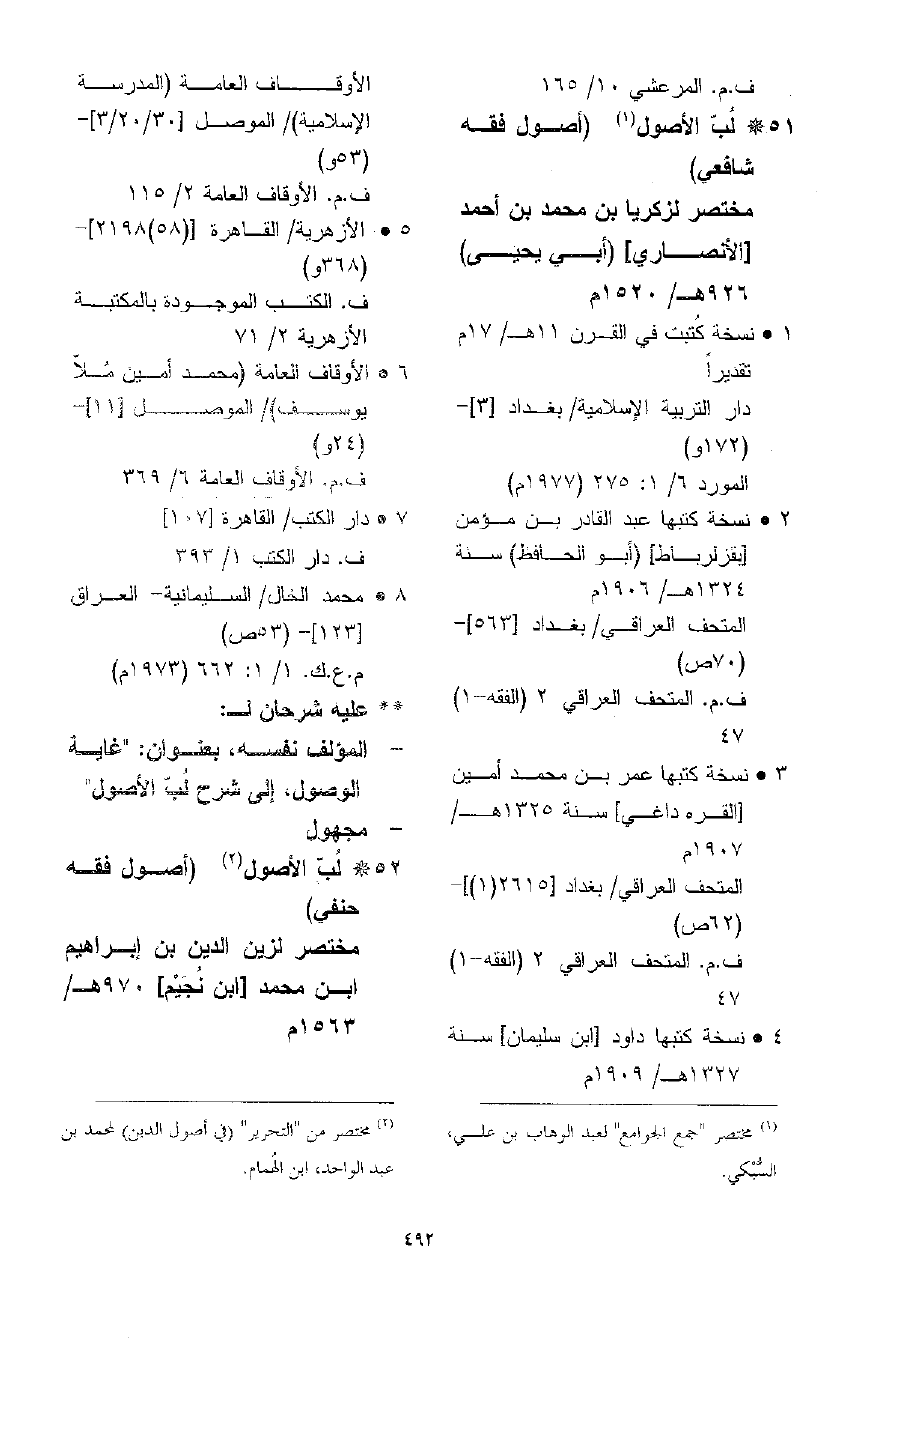 ف.م. المرعشي ١٠/ ١٦٥
٥١* لُبّ الأصول(١) (أصول فقه
شافعي)
مختصر لزكريا بن محمد بن أحمد
[الأنصاري] (أبي يحيى)
٩٢٦هـ/ ١٥٢٠م
١ • نسخة كُتبت في القرن ١١هـ/ ١٧م
تقديراً
دار التربية الإسلامية/ بغداد [٣]-
(١٧٢و)
المورد ٦/ ١: ٢٧٥ (١٩٧٧م)
٢ • نسخة كتبها عبد القادر بن مؤمن
[بقزلرباط] (أبو الحافظ) سنة
١٣٢٤هـ/ ١٩٠٦م
المتحف العراقي/ بغداد [٥٦٣]-
(٧٠ص)
ف.م. المتحف العراقي ٢ (الفقه-١)
٤٧
٣ • نسخة كتبها عمر بن محمد أمين
[القره داغي] سنة ١٣٢٥هـ/
١٩٠٧م
المتحف العراقي/ بغداد [٢٦١٥(١)]-
(٦٢ص)
ف.م. المتحف العراقي ٢ (الفقه-١)
٤٧
٤ • نسخة كتبها داود [ابن سليمان] سنة
١٣٢٧هـ/ ١٩٠٩م
(١) مختصر "جمع الجوامع" لعبد الوهاب بن علي،
السُّبْكي.
الأوقاف العامة (المدرسة
الإسلامية)/ الموصل [٣/٢٠/٣٠]-
(٥٣و)
ف.م. الأوقاف العامة ٢/ ١١٥
٥ • الأزهرية/ القاهرة [(٥٨)٢١٩٨]-
(٣٦٨و)
ف. الكتب الموجودة بالمكتبة
الأزهرية ٢/ ٧١
٦ • الأوقاف العامة (محمد أمين مُلاّ
يوسف)/ الموصل [١١]-
(٢٤و)
ف.م. الأوقاف العامة ٦/ ٣٦٩
٧ • دار الكتب/ القاهرة [١٠٧]
ف. دار الكتب ١/ ٣٩٣
٨ • محمد الخال/ السليمانية- العراق
[١٢٣]- (٥٣ص)
م.ع.ك. ١/ ١: ٦٦٢ (١٩٧٣م)
** عليه شرحان لـ:
- المؤلف نفسه، بعنوان: "غاية
الوصول، إلى شرح لُبّ الأصول"
- مجهول
٥٢* لُبّ الأصول(٢) (أصول فقه
حنفي)
مختصر لزين الدين بن إبراهيم
ابن محمد [ابن نُجَيْم] ٩٧٠هـ/
١٥٦٣م
(٢) مختصر من "التحرير" (في أصول الدين) لمحمد بن
عبد الواحد، ابن الهُمام.
٤٩٢